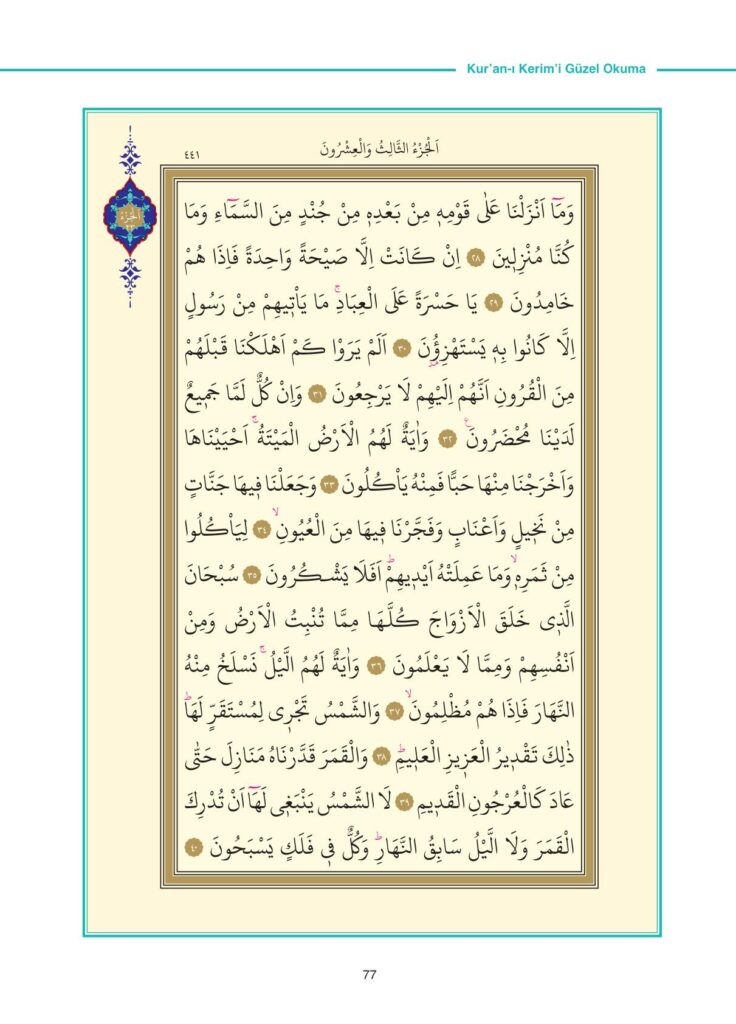 Kur’an-ı Kerim’i Güzel Okuma
اَلْجُزْءُ الثَّالِثُ وَالْعِشْرُونَ
٤٤١
اَلْجُزْءُ
٢٣
وَمَٓا اَنْزَلْنَا عَلٰى قَوْمِه۪ مِنْ بَعْدِه۪ مِنْ جُنْدٍ مِنَ السَّمَٓاءِ وَمَا
كُنَّا مُنْزِل۪ينَ ﴿٢٨﴾ اِنْ كَانَتْ اِلَّا صَيْحَةً وَاحِدَةً فَاِذَا هُمْ
خَامِدُونَ ﴿٢٩﴾ يَا حَسْرَةً عَلَى الْعِبَادِۚ مَا يَأْت۪يهِمْ مِنْ رَسُولٍ
اِلَّا كَانُوا بِه۪ يَسْتَهْزِؤُ۫نَ ﴿٣٠﴾ اَلَمْ يَرَوْا كَمْ اَهْلَكْنَا قَبْلَهُمْ
مِنَ الْقُرُونِ اَنَّهُمْ اِلَيْهِمْ لَا يَرْجِعُونَ ﴿٣١﴾ وَاِنْ كُلٌّ لَمَّا جَم۪يعٌ
لَدَيْنَا مُحْضَرُونَ۟ ﴿٣٢﴾ وَاٰيَةٌ لَهُمُ الْاَرْضُ الْمَيْتَةُۚ اَحْيَيْنَاهَا
وَاَخْرَجْنَا مِنْهَا حَبًّا فَمِنْهُ يَأْكُلُونَ ﴿٣٣﴾ وَجَعَلْنَا ف۪يهَا جَنَّاتٍ
مِنْ نَخ۪يلٍ وَاَعْنَابٍ وَفَجَّرْنَا ف۪يهَا مِنَ الْعُيُونِۙ ﴿٣٤﴾ لِيَأْكُلُوا
مِنْ ثَمَرِه۪ۙ وَمَا عَمِلَتْهُ اَيْد۪يهِمْۜ اَفَلَا يَشْكُرُونَ ﴿٣٥﴾ سُبْحَانَ
الَّذ۪ى خَلَقَ الْاَزْوَاجَ كُلَّهَا مِمَّا تُنْبِتُ الْاَرْضُ وَمِنْ
اَنْفُسِهِمْ وَمِمَّا لَا يَعْلَمُونَ ﴿٣٦﴾ وَاٰيَةٌ لَهُمُ الَّيْلُۚ نَسْلَخُ مِنْهُ
النَّهَارَ فَاِذَا هُمْ مُظْلِمُونَۙ ﴿٣٧﴾ وَالشَّمْسُ تَجْر۪ى لِمُسْتَقَرٍّ لَهَاۜ
ذٰلِكَ تَقْد۪يرُ الْعَز۪يزِ الْعَل۪يمِۜ ﴿٣٨﴾ وَالْقَمَرَ قَدَّرْنَاهُ مَنَازِلَ حَتّٰى
عَادَ كَالْعُرْجُونِ الْقَد۪يمِ ﴿٣٩﴾ لَا الشَّمْسُ يَنْبَغ۪ى لَهَٓا اَنْ تُدْرِكَ
الْقَمَرَ وَلَا الَّيْلُ سَابِقُ النَّهَارِۜ وَكُلٌّ ف۪ى فَلَكٍ يَسْبَحُونَ ﴿٤٠﴾
77